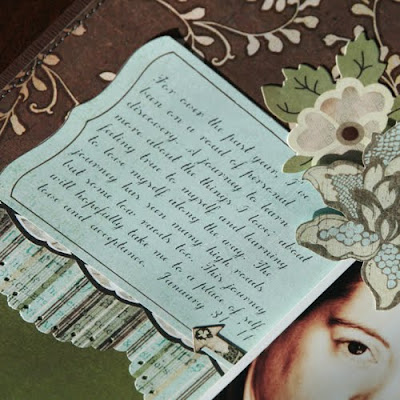 For over the past year, I've
been on a road of personal
discovery. A journey to learn
more about the things I love; about
feeling true to myself and learning
to love myself along the way. The
journey has seen many high roads
but some low roads too. This journey
will hopefully take me to a place of self
love and acceptance. January